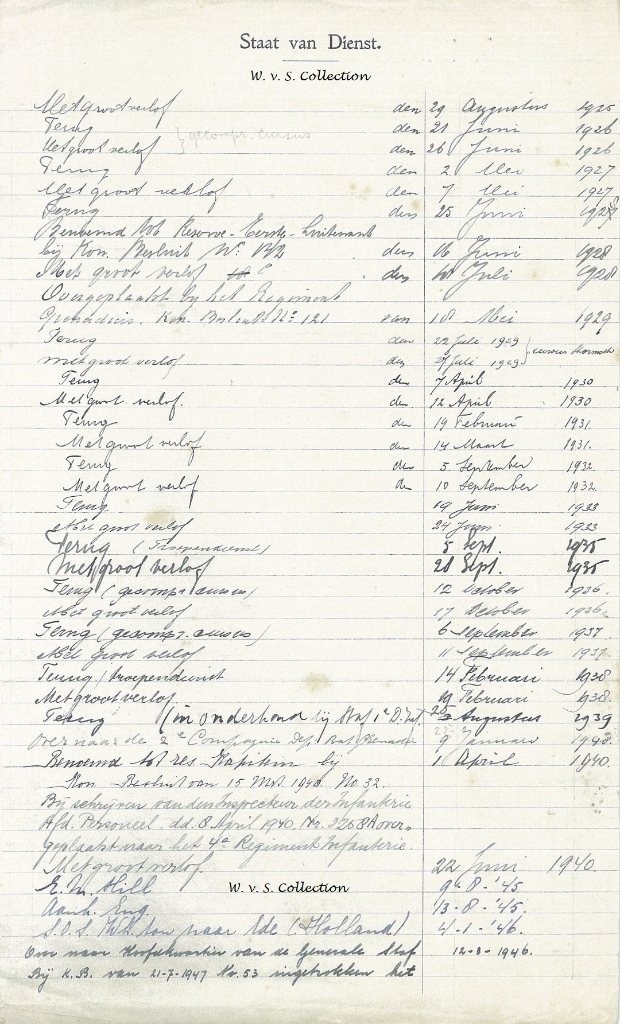 Staat van Dienst.
W. v. S. Collection
Met groot verlof den 29 Augustus 1925
Terug den 21 Juni 1926
} gecomp. cursus
Met groot verlof den 26 Juni 1926
Terug den 2 Mei 1927
Met groot verlof den 7 Mei 1927
Terug den 25 Juni
Benoemd tot Reserve-Eerste-Luitenant
bij Kon. Besluit No. den 16 Juni 1928
Met groot verlof den Juli 1928
Overgeplaatst bij het Regiment
Grenadiers. Kon. Besluit No 121 van 18 Mei 1929
Terug den 22 Juli 1929
Met groot verlof den 27 Juli 1929 } cursus
Terug den 7 April 1930
Met groot verlof. den 12 April 1930
Terug den 19 Februari 1931.
Met groot verlof den 14 Maart 1931.
Terug den 5 September 1932
Met groot verlof den 10 September 1932
Terug 19 Juni 1933
Met groot verlof 24 Juni 1933
Terug (Troependienst) 5 Sept. 1935
Met groot verlof 21 Sept. 1935
Terug (gecomp. cursus) 12 October 1936.
Met groot verlof 17 October 1936.
Terug (gecomp. cursus) 6 September 1937.
Met groot verlof 11 September 1937.
Terug / troependienst 14 Februari 1938
Met groot verlof. 19 Februari 1938.
Terug (in onderhoud bij Staf 1e D. Inf. Augustus 1939
Over naar de 2e Compagnie Dep. Bat. 9 Januari 1940.
Benoemd tot res. Kapitein bij 1 April 1940
Kon. Besluit van 15 Mrt. 1940 No. 32.
Bij schrijven van den Inspecteur der Infanterie
Afd. Personeel. dd. 8 April 1940, Nr. 2268A over-
geplaatst naar het 4e Regiment Infanterie.
Met groot verlof. 22 Juni 1940.
E. M. Hill 9-8-'45
W. v. S. Collection
Aank. Eng. 13-8-'45.
S.O.S. naar Ede (Holland) 4-1-'46.
Over naar Hoofdkwartier van de Generale Staf 12-3-1946.
Bij K.B. van 21-7-1947 No. 53 ingetrokken het